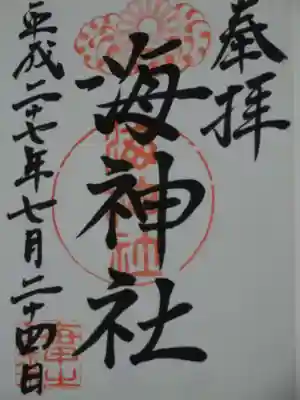 奉拝
海神社
平成二十七年七月二十四日
海神社